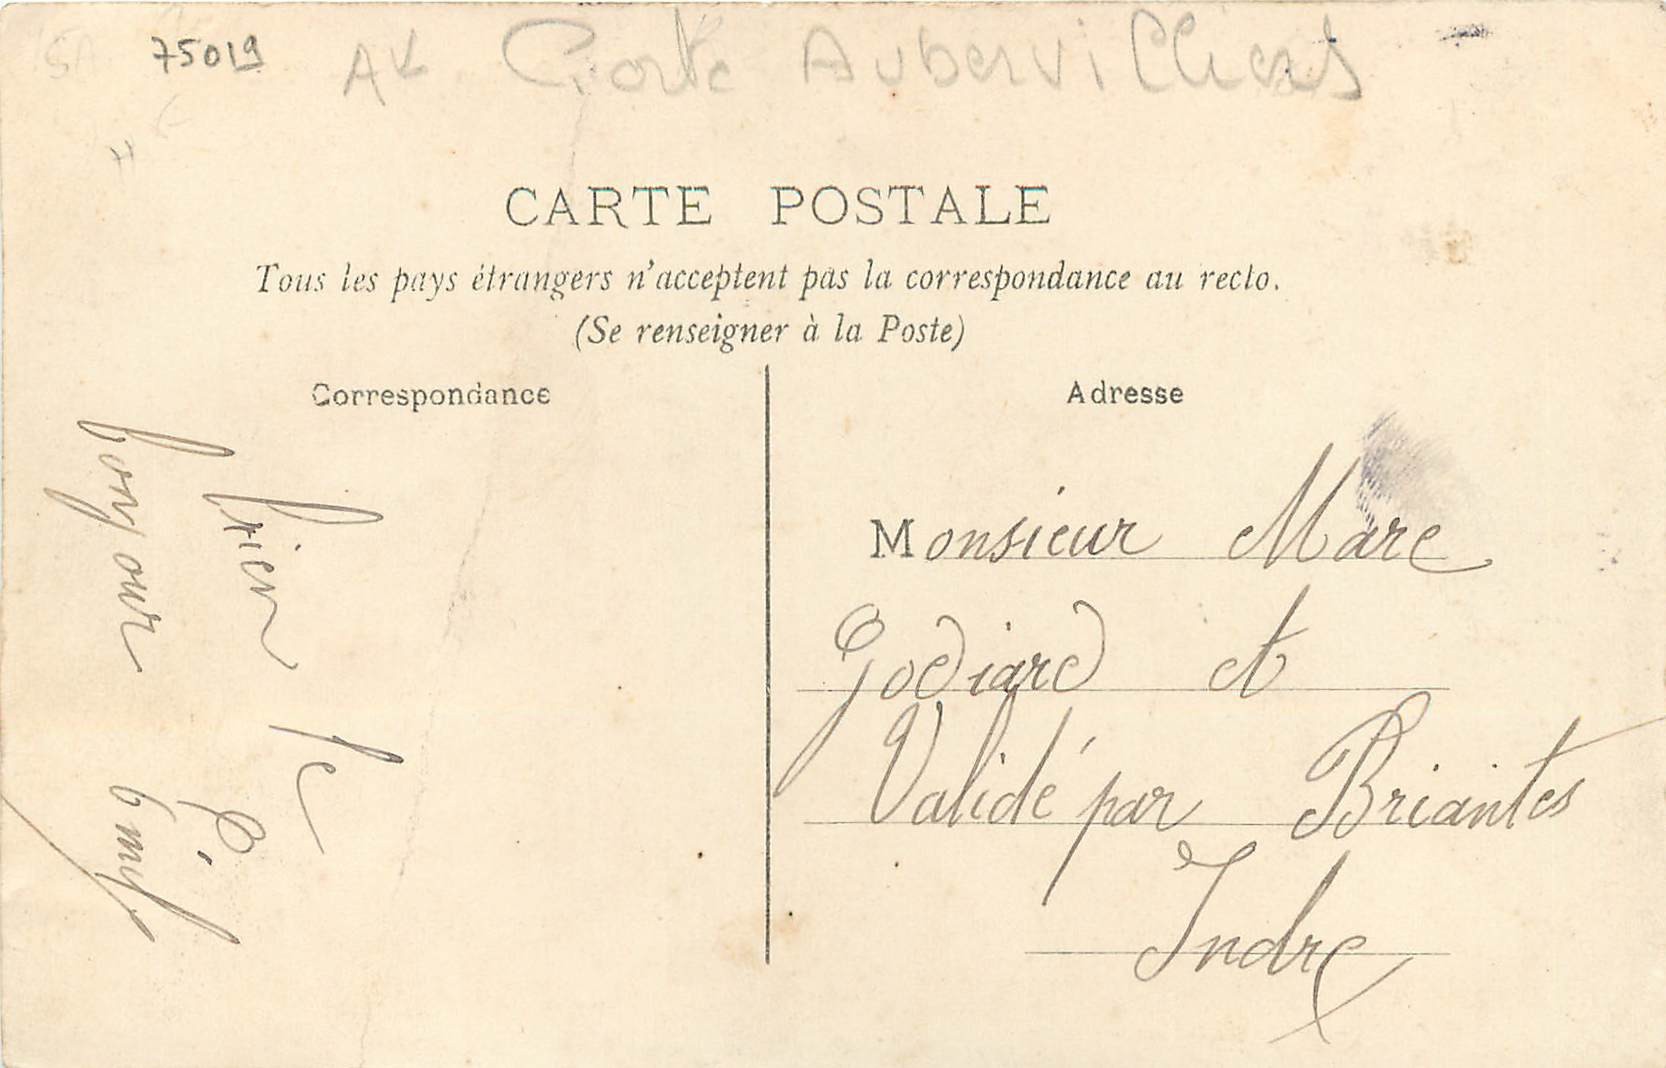 75019 AV Porte Aubervilliers
CARTE POSTALE
Tous les pays étrangers n'acceptent pas la correspondance au recto.
(Se renseigner à la Poste)
Correspondance
Adresse
bien le
bonjour
Monsieur Marc
Godiard et
Validé par Briantes
Indre